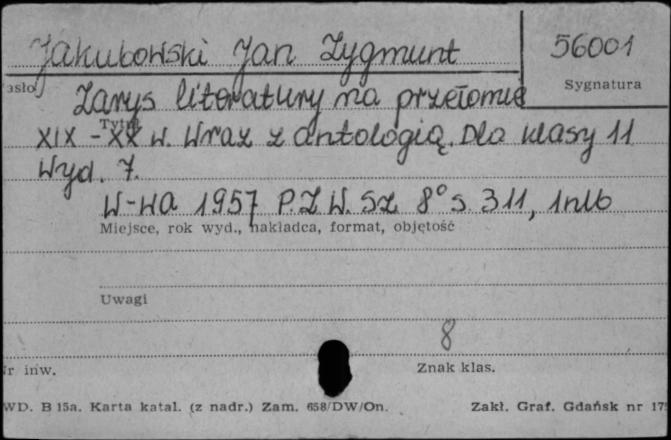 Jakubowski Jan Zygmunt
56001
asło
Sygnatura
Zarys literatury na przełomie
Tytuł
XIX - XX w. Wraz z antologią. Dla klasy 11
Wyd. 7.
W-wa 1957 P.Z.W.Sz 8° s. 311, 1nlb
Miejsce, rok wyd., nakładca, format, objętość
Uwagi
8
Nr inw.
Znak klas.
WD. B 15a. Karta katal. (z nadr.) Zam. 658/DW/On.
Zakł. Graf. Gdańsk nr 17